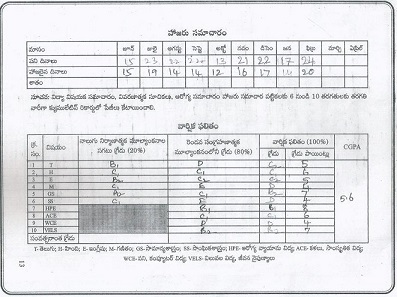 హాజరు సమాచారం
మాసం జూన్ జులై ఆగస్టు సెప్టె అక్టో నవం డిసెం జన ఫిబ్ర మార్చి ఏప్రిల్
పని దినాలు 15 23 22 220 13 21 22 17 24
హాజరైన దినాలు 15 19 14 14 12 16 17 16 20
శాతం
సూచన: విద్యా విషయక సమాచారం, వివరణాత్మక సూచికలు, ఆరోగ్య సమాచారం హాజరు సమాచార పట్టికలకు 6 నుండి 10 తరగతులకు తరగతి
వారీగా క్యుములేటివ్ రికార్డులో పేజీలు కేటాయించాలి.
వార్షిక ఫలితం
క్ర. సం. విషయం నాలుగు నిర్మాణాత్మక మూల్యాంకనాల సగటు గ్రేడు (20%) రెండవ సంగ్రహణాత్మక మూల్యాంకనంలోని గ్రేడు (80%) వార్షిక ఫలితం (100%) గ్రేడు గ్రేడు పాయింట్లు CGPA
1 T B₁ D C₂ 5
2 H C₁ C₁ 6
3 E B₂ C₂ 5
4 M C₁ E D 4
5 GS B₂ 7
6 SS C₁ E D 4
7 HPE B₁ 8
8 ACE C₁ 6
9 WCE D 4
10 VSLS B₂ 7
5.6
సంవత్సరాంత గ్రేడు
T-తెలుగు; H-హింది; E-ఇంగ్లీషు; M-గణితం; GS-సామాన్యశాస్త్రం; SS-సాంఘికశాస్త్రం; HPE- ఆరోగ్య వ్యాయామ విద్య; ACE-కళలు, సాంస్కృతిక విద్య;
WCE-పని, కంప్యూటర్ విద్య; VSLS-విలువల విద్య, జీవన నైపుణ్యాలు
13